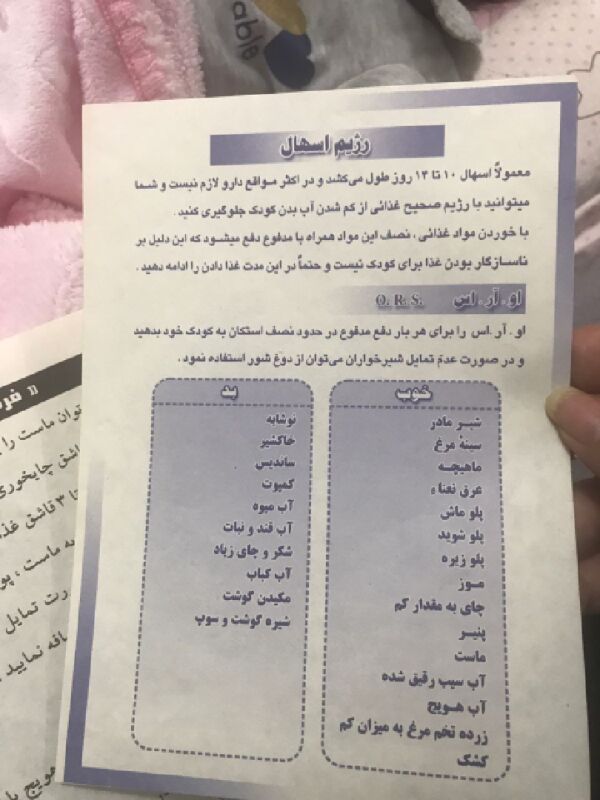 رژیم اسهال
معمولاً اسهال ۱۰ تا ۱۴ روز طول می‌کشد و در اکثر مواقع دارو لازم نیست و شما
میتوانید با رژیم صحیح غذائی از کم شدن آب بدن کودک جلوگیری کنید.
با خوردن مواد غذائی، نصف این مواد همراه با مدفوع دفع میشود که این دلیل بر
ناسازگار بودن غذا برای کودک نیست و حتماً در این مدت غذا دادن را ادامه دهید.
او.آر.اس O.R.S.
او.آر.اس را برای هر بار دفع مدفوع در حدود نصف استکان به کودک خود بدهید
و در صورت عدم تمایل شیرخواران می‌توان از دوغ شور استفاده نمود.
خوب
شیر مادر
سینهٔ مرغ
ماهیچه
عرق نعناء
پلو ماش
پلو شوید
پلو زیره
موز
چای به مقدار کم
پنیر
ماست
آب سیب رقیق شده
آب هویج
زرده تخم مرغ به میزان کم
کشک
بد
نوشابه
خاکشیر
ساندیس
کمپوت
آب میوه
آب قند و نبات
شکر و چای زیاد
آب کباب
مکیدن گوشت
شیره گوشت و سوپ
توان ماست را
شق چایخوری
تا ۳ قاشق غذ
به ماست، پو
رت تمایل
افه نمایید
هویج یا